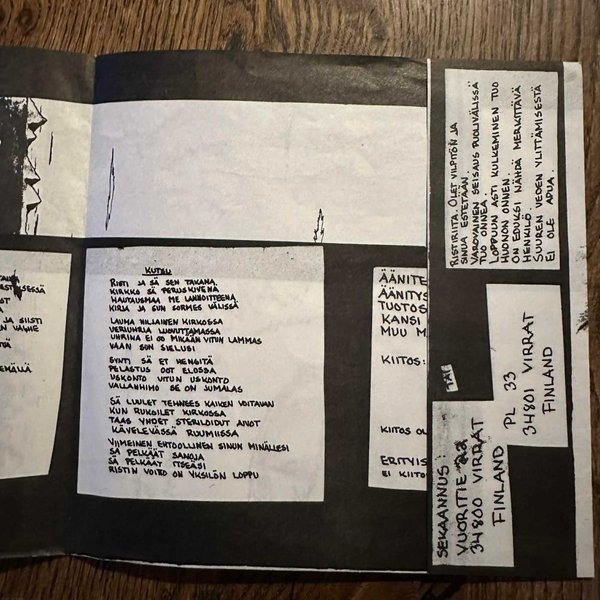 KUTSU
RISTI JA SÄ SEN TAKANA
KIRKKO SÄ PERUSKIVENÄ
HAUTAUSMAA ME LANNOITTEENA
KIRJA JA SUN SORMES VÄLISSÄ
LAUMA HILJAINEN KIRKOSSA
VERIUHRIA LUOVUTTAMASSA
UHRINA EI OO MIKÄÄN VITUN LAMMAS
VAAN SUN SIELUSI
SYNTI SÄ ET HENGITÄ
PELASTUS OOT ELOSSA
USKONTO VITUN USKONTO
VALLANHIMO SE ON JUMALAS
SÄ LUULET TEHNEES KAIKEN VOITAVAN
KUN RUKOILET KIRKOSSA
TAAS YHDET STERILOIDUT AIVOT
KÄVELEVÄSSÄ RUUMIISSA
VIIMEINEN EHTOOLLINEN SINUN MINÄLLESI
SÄ PELKÄÄT SANOJA
SÄ PELKÄÄT ITSEÄSI
RISTIN VOITO ON YKSILÖN LOPPU
ÄÄNITE
ÄÄNITYS
TUOTOS
KANSI
MUU M
KIITOS:
KIITOS OL
ERITYIS
EI KIITO
RISTIRIITA. OLET VILPITÖN JA
SINUA ESTETÄÄN.
VAROVAINEN SEISAUS PUOLIVÄLISSÄ
TUO ONNEA.
LOPPUUN ASTI KULKEMINEN TUO
HUONON ONNEN.
ON EDUKSI NÄHDÄ MERKITTÄVÄ
HENKILÖ.
SUUREN VEDEN YLITTÄMISESTÄ
EI OLE APUA.
TAI
SEKAANNUS:
VUORITIE
34800 VIRRAT
FINLAND
PL 33
34801 VIRRAT
FINLAND